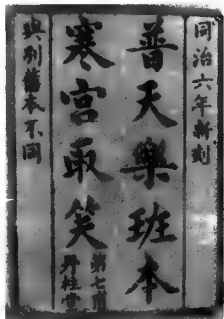 同治六年新刻
普天樂班本
寒宮取笑
第七甫
丹桂堂
與別舊本不同